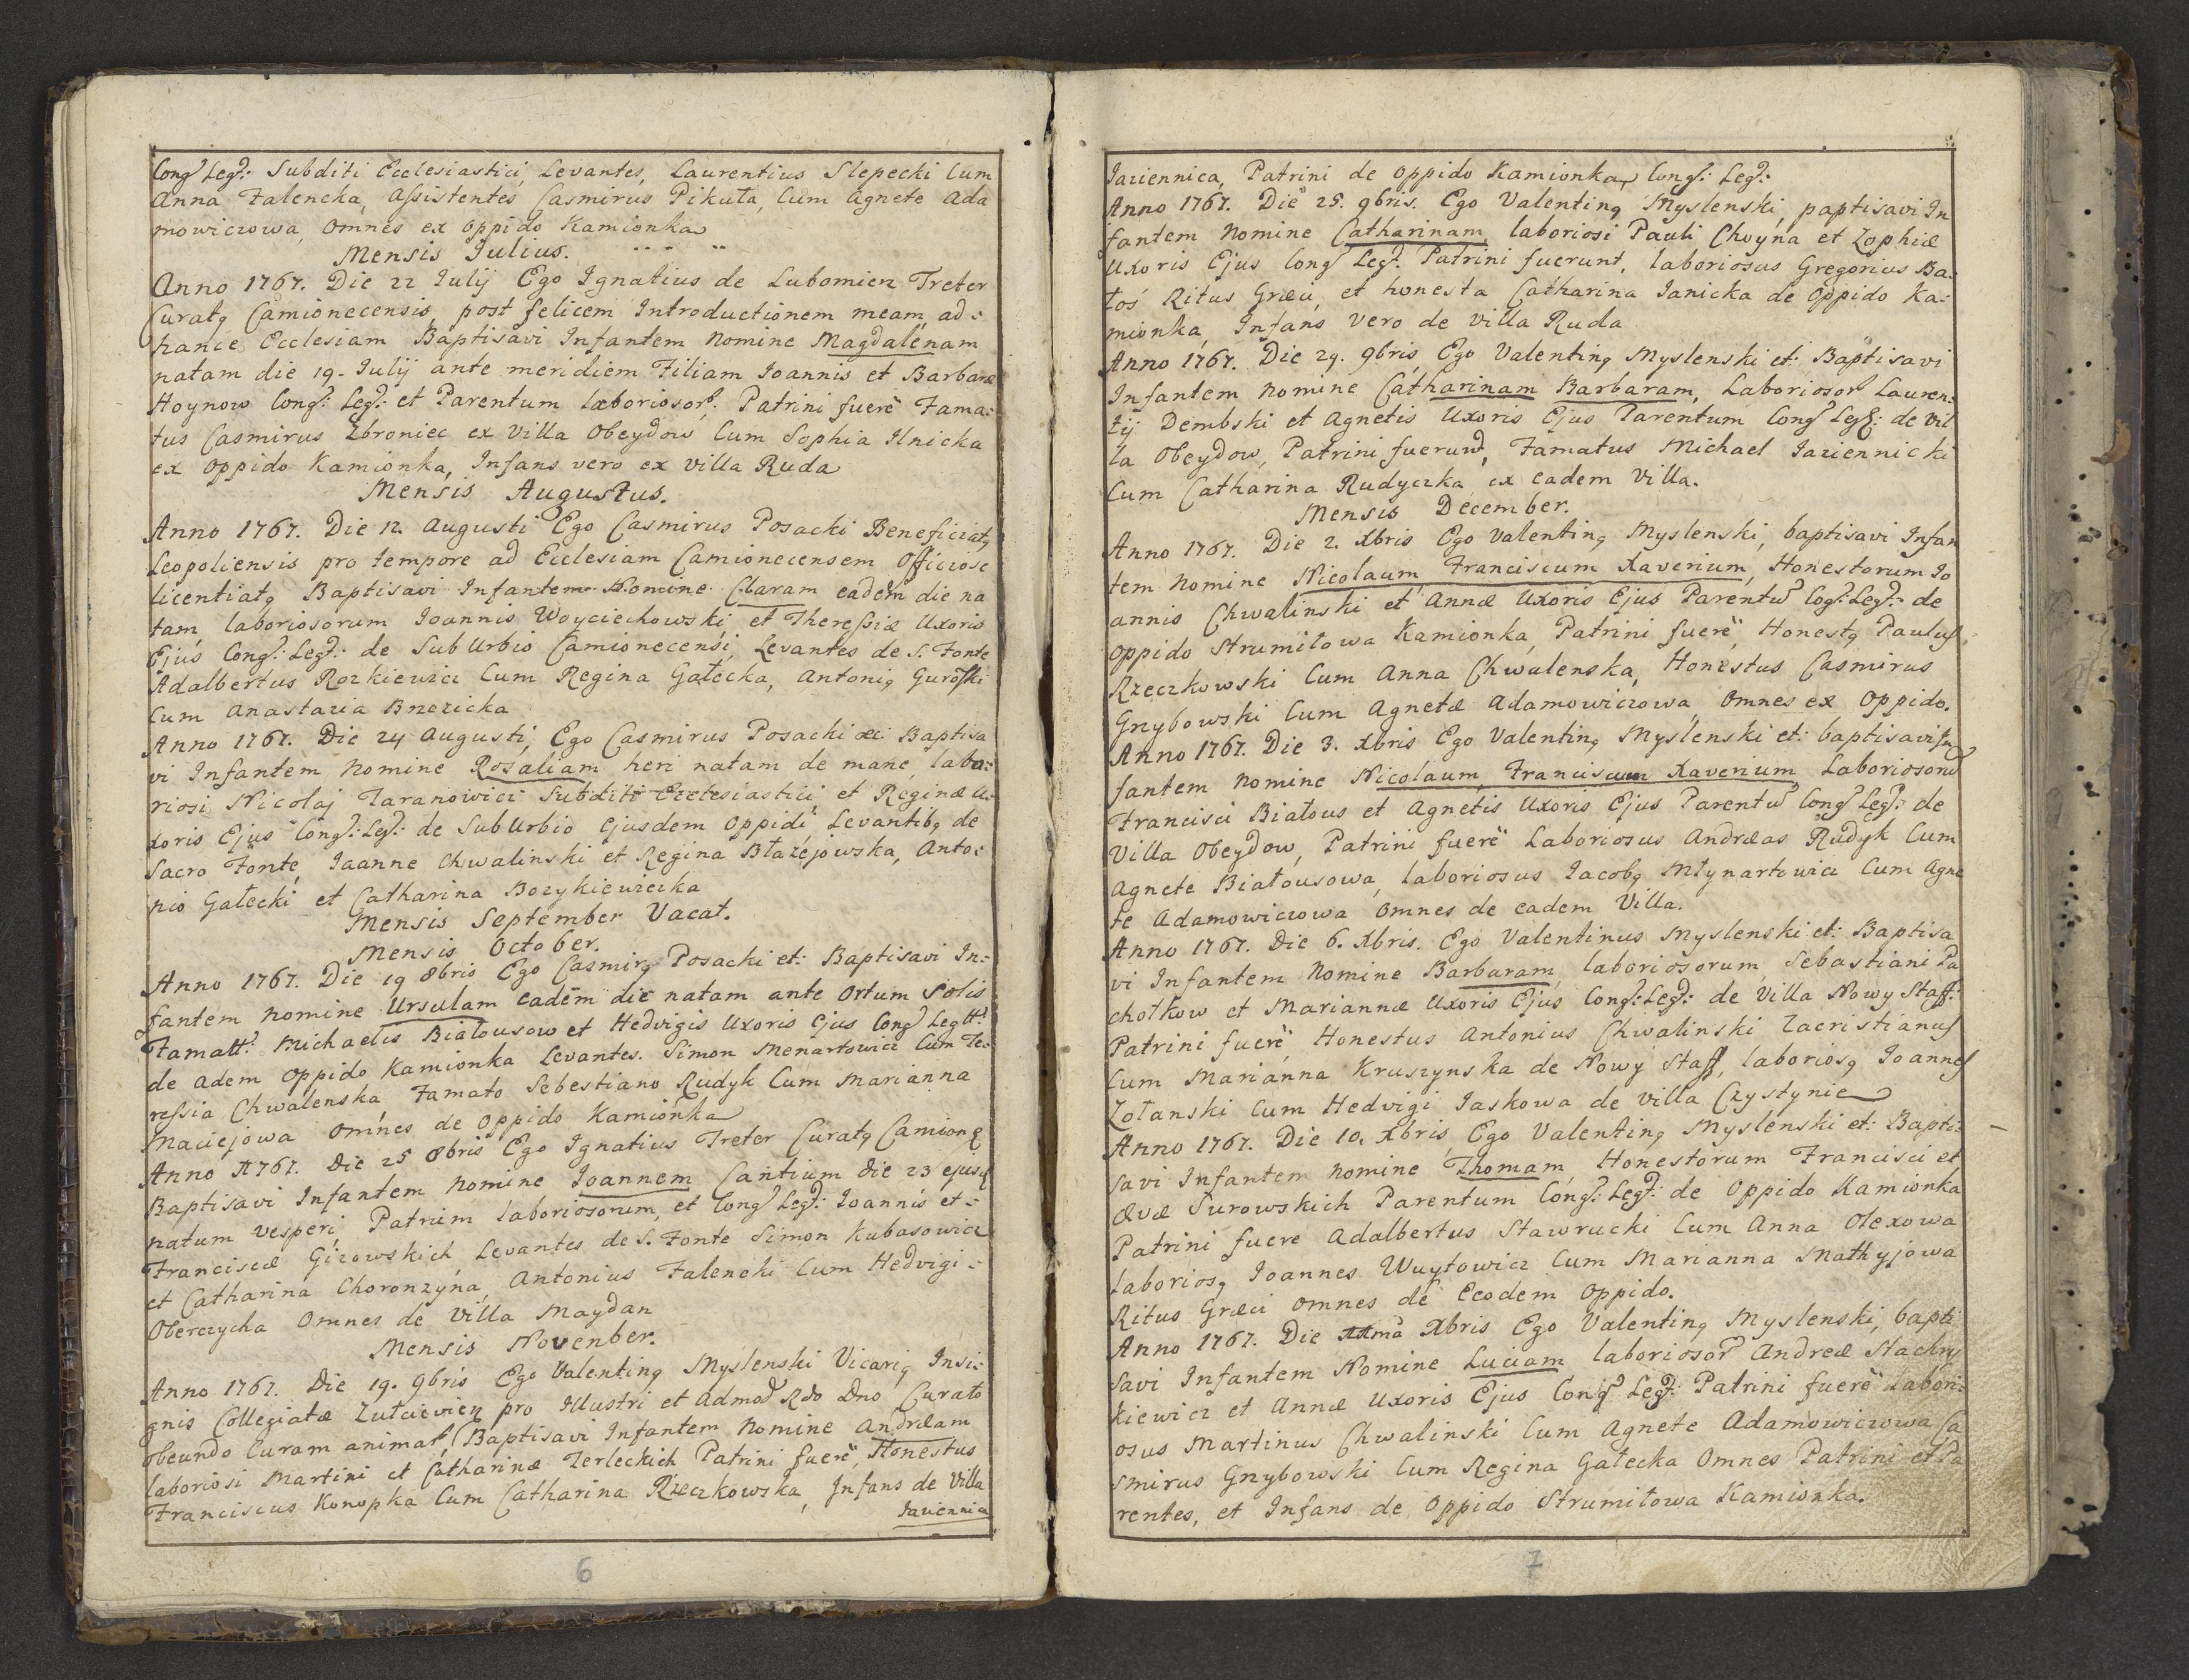 Cong Leg: Subditi Ecclesiastici, Levantes, Laurentius Slepecki Cum
Anna Falencka, Assistentes Casmirus Pikuła, Cum Agnete Ada
mowiczowa, Omnes ex Oppido Kamionka
Mensis Julius.
Anno 1767. Die 22 Julij Ego Ignatius de Lubomierz Treter
Curatg Camionecensis, post felicem Introductionem meam, ad
hance Ecclesiam Baptisavi Infantem Nomine Magdalenam
natam die 19. Julij ante meridiem Filiam Joannis et Barbaræ
Hoynow Cong: Leg: et Parentum laboriosor: Patrini fuerē Fama:
tus Casmirus Zbroniec ex Villa Obeydow Cum Sophia Ilnicka
ex Oppido Kamionka, Infans vero ex villa Ruda
Mensis Augustus.
Anno 1767. Die 12. Augusti Ego Casmirus Posacki Beneficiatg
Leopoliensis pro tempore ad Ecclesiam Camionecensem Officiose
licentiatg Baptisavi Infantem Nomine Claram eadem die na
tam, laboriosorum Joannis Woyciechowski et Theressiæ Uxoris
Ejus Cong: Leg: de SubUrbio Camionecensi, Levantes de S. Fonte
Adalbertus Rozkiewicz Cum Regina Gałecka, Antonig Gurosski
Cum Anastazia Brzezicka
Anno 1767. Die 24 Augusti, Ego Casmirus Posacki etc Baptisa
vi Infantem Nomine Rosaliam heri natam de mane, labo:
riosi Nicolaj Taranowicz Subditi Ecclesiastici, et Reginæ U:
xoris Ejus Cong: Leg: de SubUrbio Ejusdem Oppidi, Levantibg de
Sacro Fonte, Joanne Chwalinski et Regina Błażejowska, Anto:
nio Gałecki et Catharina Bozykiewiczka
Mensis September Vacat.
Mensis October.
Anno 1767. Die 19 8bris Ego Casmirg Posacki et: Baptisavi In:
fantem Nomine Ursulam eadem die natam ante Ortum Solis
Famatt: Michaelis Białousow et Hedvigis Uxoris Ejus Cong Legtt:
de Adem Oppido Kamionka Levantes. Simon Menartowicz Cum Te:
ressia Chwalenska, Famato Sebestiano Rudyk Cum Marianna
Maciejowa Omnes de Oppido Kamionka
Anno 1767. Die 25 8bris Ego Ignatius Treter Curatg Camiong
Baptisavi Infantem Nomine Joannem Cantium die 23 ejusq
natum vesperi, Patrum laboriosorum, et Cong Leg: Joannis et:
Franciscæ Gizowskich, Levantes de S. Fonte Simon Kubasowicz
et Catharina Choronzyna, Antonius Falencki Cum Hedvigi:
Oberczycha Omnes de Villa Maydan
Mensis Novenber.
Anno 1767. Die 19. 9bris Ego Valenting Myslenski Vicarig Insi:
gnis Collegiatæ Zułcievien pro Illustri et Admod Rdo Dno Curato
Obeundo Curam animar, Baptisavi Infantem Nomine Andræam
laboriosi Martini et Catharinæ Zerleckich Patrini fuerē, Honestus
Franciscus Konopka Cum Catharina Rzeczkowska, Infans de Villa
Jaziennica
6
Jaziennica, Patrini de Oppido Kamionka, Cong: Leg:
Anno 1767. Die 25. 9bris. Ego Valenting Myslenski, paptisavi In
fantem Nomine Catharinam, laboriosi Pauli Choyna et Zophiæ
Uxoris Ejus Cong Leg: Patrini fuerunt, laboriosus Gregorius Ba:
toś Ritus Græci, et honesta Catharina Janicka de Oppido Ka:
mionka, Infans Vero de Villa Ruda
Anno 1767. Die 29. 9bris, Ego Valenting Myslenski et: Baptisavi
Infantem Nomine Catharinam Barbaram, Laboriosor Lauren:
tij Dembski et Agnetis Uxoris Ejus Parentum Cong Leg: de Vil
la Obeydow, Patrini fuerund, Famatus Michael Jaziennicki
Cum Catharina Rudyczka ex eadem Villa.
Mensis December.
Anno 1767. Die 2. Xbris Ego Valenting Myslenski, baptisavi Infan
tem Nomine Nicolaum Franciscum Xaverium, Honestorum Jo
annis Chwalinski et Annæ Uxoris Ejus Parentu Cog: Leg: de
Oppido Strumiłowa Kamionka, Patrini fuerē, Honestg Paulus
Rzeczkowski Cum Anna Chwalenska, Honestus Casmirus
Grzybowski Cum Agnetæ Adamowiczowa, Omnes ex Oppido.
Anno 1767. Die 3. Xbris Ego Valenting Myslenski et: baptisavi In
fantem Nomine Nicolaum, Franciscum Xaverium, Laboriosoru
Francisci Białous et Agnetis Uxoris Ejus Parentu Cong Leg: de
Villa Obeydow, Patrini fuerē Laboriosus Andræas Rudyk Cum
Agnete Białousowa, laboriosus Jacobg Młynartowicz Cum Agne
te Adamowiczowa Omnes de eadem Villa.
Anno 1767. Die 6. Xbris. Ego Valentinus Myslenski et: Baptisa
vi Infantem Nomine Barbaram, laboriosorum, Sebastiani Pa
chołkow et Mariannæ Uxoris Ejus Cong: Leg: de Villa Nowy Staff:
Patrini fuerē, Honestus Antonius Chwalinski Zacristianus
Cum Marianna Kruszynska de Nowy Staff, laboriosg Joannes
Zołanski Cum Hedvigi Jaskowa de villa Czystynie
Anno 1767. Die 10. Xbris, Ego Valenting Myslenski et: Bapti:
savi Infantem Nomine Thomam, Honestorum Francisci et
Ævæ Surowskich Parentum Cong: Leg: de Oppido Kamionka
Patrini fuere Adalbertus Stawrucki Cum Anna Olexowa
laboriosg Joannes Wuytowicz Cum Marianna Mathyjowa
Ritus Græci Omnes de Eeodem Oppido.
Anno 1767. Die Xbris Ego Valenting Myslenski, bapti
savi Infantem Nomine Luciam laboriosor Andreæ Stachny
kiewicz et Annæ Uxoris Ejus Cong Leg: Patrini fuerē Labori:
osus Martinus Chwalinski Cum Agnete Adamowiczowa, Ca
smirus Grzybowski Cum Regina Gałecka Omnes Patrini et Pa
rentes, et Infans de Oppido Strumiłowa Kamionka.
7